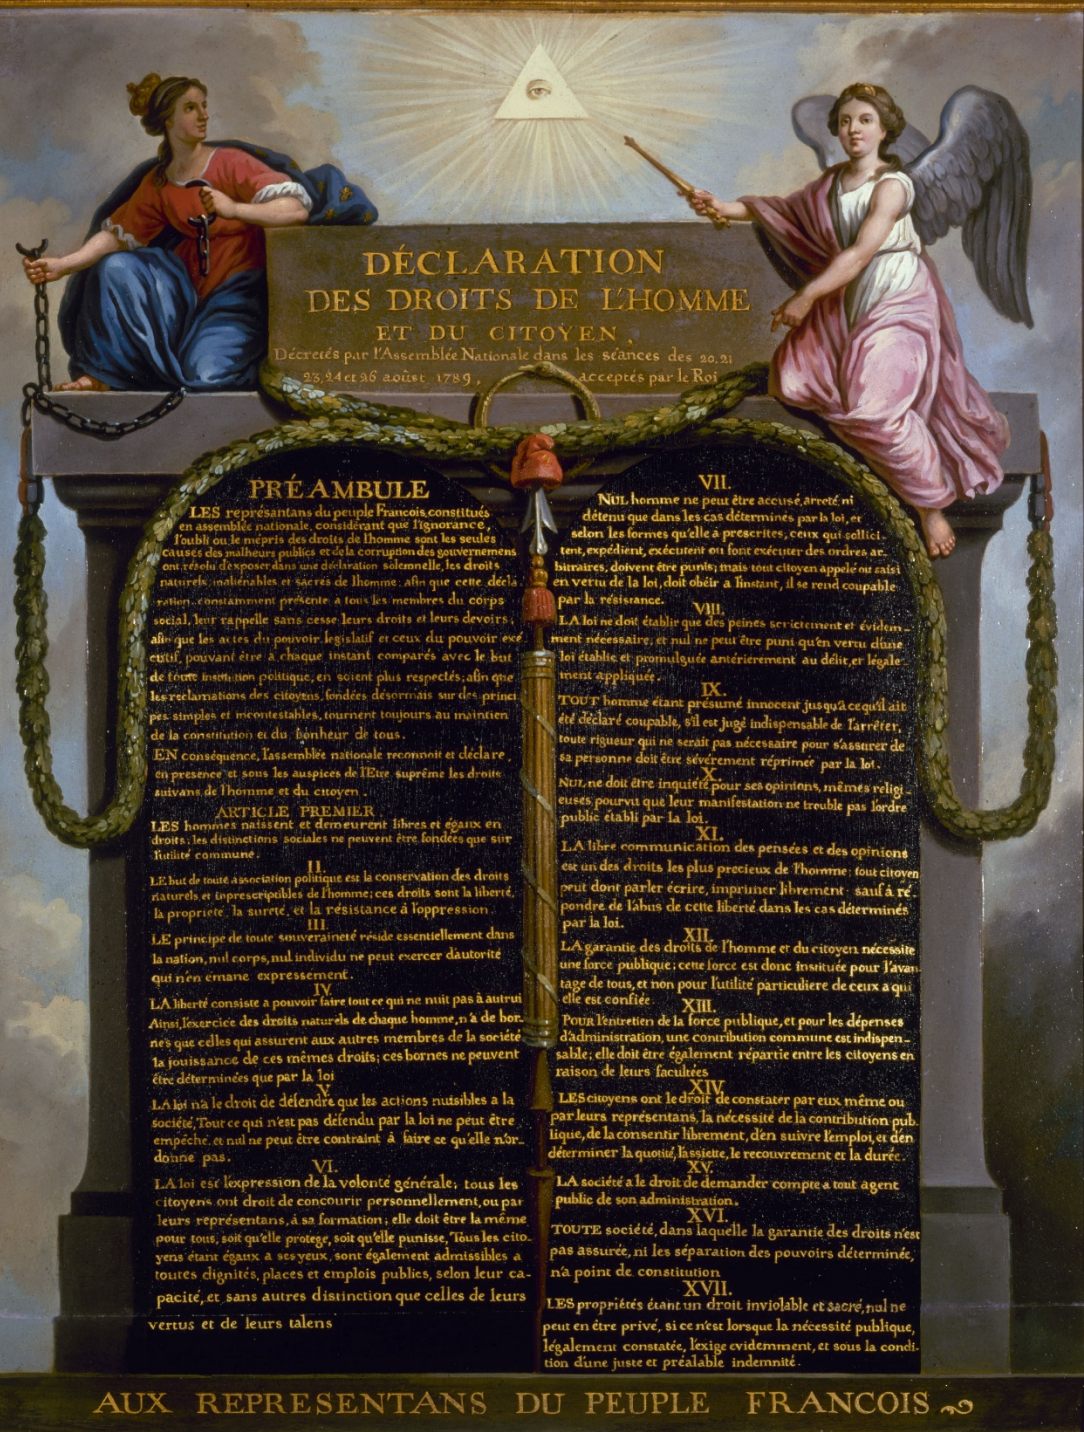 DÉCLARATION
DES DROITS DE L'HOMME
ET DU CITOYEN,
Décretés par l'Assemblée Nationale dans les séances des 20, 21
23, 24 et 26 aoûst 1789, acceptés par le Roi
PRÉAMBULE
LES représantans du peuple François, constitués
en assemblée nationale, considérant que l'ignorance,
l'oubli ou le mépris des droits de l'homme sont les seules
causes des malheurs publics et de la corruption des gouvernemens
ont résolu d'exposer dans une déclaration solemnelle, les droits
naturels, inaliénables et sacrés de l'homme; afin que cette décla-
ration, constamment présente à tous les membres du corps
social, leur rappelle sans cesse leurs droits et leurs devoirs;
afin que les actes du pouvoir législatif et ceux du pouvoir exé-
cutif, pouvant être à chaque instant comparés avec le but
de toute institution politique, en soient plus respectés; afin que
les reclamations des citoyens, fondées désormais sur des princi
pes simples et incontestables, tournent toujours au maintien
de la constitution et du bonheur de tous.
EN conséquence, l'assemblée nationale reconnoit et déclare,
en presence et sous les auspices de l'Etre suprême les droits
suivans de l'homme et du citoyen.
ARTICLE PREMIER.
LES hommes naissent et demeurent libres et égaux en
droits; les distinctions sociales ne peuvent être fondées que sur
l'utilité commune.
II.
LE but de toute association politique est la conservation des droits
naturels et inprescriptibles de l'homme; ces droits sont la liberté,
la propriété, la sureté, et la résistance à l'oppression.
III.
LE principe de toute souveraineté réside essentiellement dans
la nation, nul corps, nul individu ne peut exercer d'autorité
qui n'en émane expressément.
IV.
LA liberté consiste a pouvoir faire tout ce qui ne nuit pas à autrui
Ainsi, l'exercice des droits naturels de chaque homme, n'a de bor-
nes que celles qui assurent aux autres membres de la société
la jouissance de ces mêmes droits; ces bornes ne peuvent
être déterminées que par la loi
V.
LA loi n'a le droit de défendre que les actions nuisibles a la
société, Tout ce qui n'est pas défendu par la loi ne peut être
empêché, et nul ne peut être contraint à faire ce qu'elle n'or-
donne pas.
VI.
LA loi est l'expression de la volonté générale; tous les
citoyens ont droit de concourir personnellement, ou par
leurs représentans, à sa formation; elle doit être la même
pour tous, soit qu'elle protege, soit qu'elle punisse, Tous les cito-
yens étant égaux à ses yeux, sont également admissibles à
toutes dignités, places et emplois publics, selon leur ca-
pacité, et sans autres distinction que celles de leurs
vertus et de leurs talens
VII.
NUL homme ne peut être accusé, arreté, ni
détenu que dans les cas déterminés par la loi, et
selon les formes qu'elle à prescrites, ceux qui sollici-
tent, expédient, exécutent ou font exécuter des ordres ar-
bitraires, doivent être punis; mais tout citoyen appelé ou saisi
en vertu de la loi, doit obéir à l'instant, il se rend coupable
par la résistance.
VIII.
LA loi ne doit établir que des peines strictement et évidem-
ment nécessaire, et nul ne peut être puni qu'en vertu d'une
loi établie et promulguée antérierement au délit, et légale-
ment appliquée.
IX.
TOUT homme étant présumé innocent jusqu'a ce qu'il ait
été déclaré coupable, s'il est jugé indispensable de l'arrêter,
toute rigueur qui ne serait pas nécessaire pour s'assurer de
sa personne doit être sévèrement réprimée par la loi.
X.
NUL ne doit être inquiété pour ses opinions, mêmes religi-
euses, pourvu que leur manifestation ne trouble pas l'ordre
public établi par la loi.
XI.
LA libre communication des pensées et des opinions
est un des droits les plus precieux de l'homme; tout citoyen
peut dont parler écrire, imprimer librement sauf à ré-
pondre de l'abus de cette liberté dans les cas déterminés
par la loi.
XII.
LA garantie des droits de l'homme et du citoyen nécessite
une force publique; cette force est donc instituée pour l'avan
tage de tous, et non pour l'utilité particuliere de ceux a qui
elle est confiée
XIII.
POUR l'entretien de la force publique, et pour les dépenses
d'administration, une contribution commune est indispen-
sable; elle doit être également répartie entre les citoyens en
raison de leurs facultées
XIV.
LES citoyens ont le droit de constater par eux même ou
par leurs représentans, la nécessité de la contribution pub-
lique, de la consentir librement, d'en suivre l'emploi, et d'en
déterminer la quotité, l'assiette, le recouvrement et la durée.
XV.
LA société a le droit de demander compte a tout agent
public de son administration.
XVI.
TOUTE société, dans laquelle la garantie des droits n'est
pas assurée, ni les séparation des pouvoirs déterminée,
n'a point de constitution
XVII.
LES propriétés étant un droit inviolable et sacré, nul ne
peut en être privé, si ce n'est lorsque la nécessité publique,
légalement constatée, l'exige evidemment, et sous la condi-
tion d'une juste et préalable indemnité.
AUX REPRESENTANS DU PEUPLE FRANCOIS